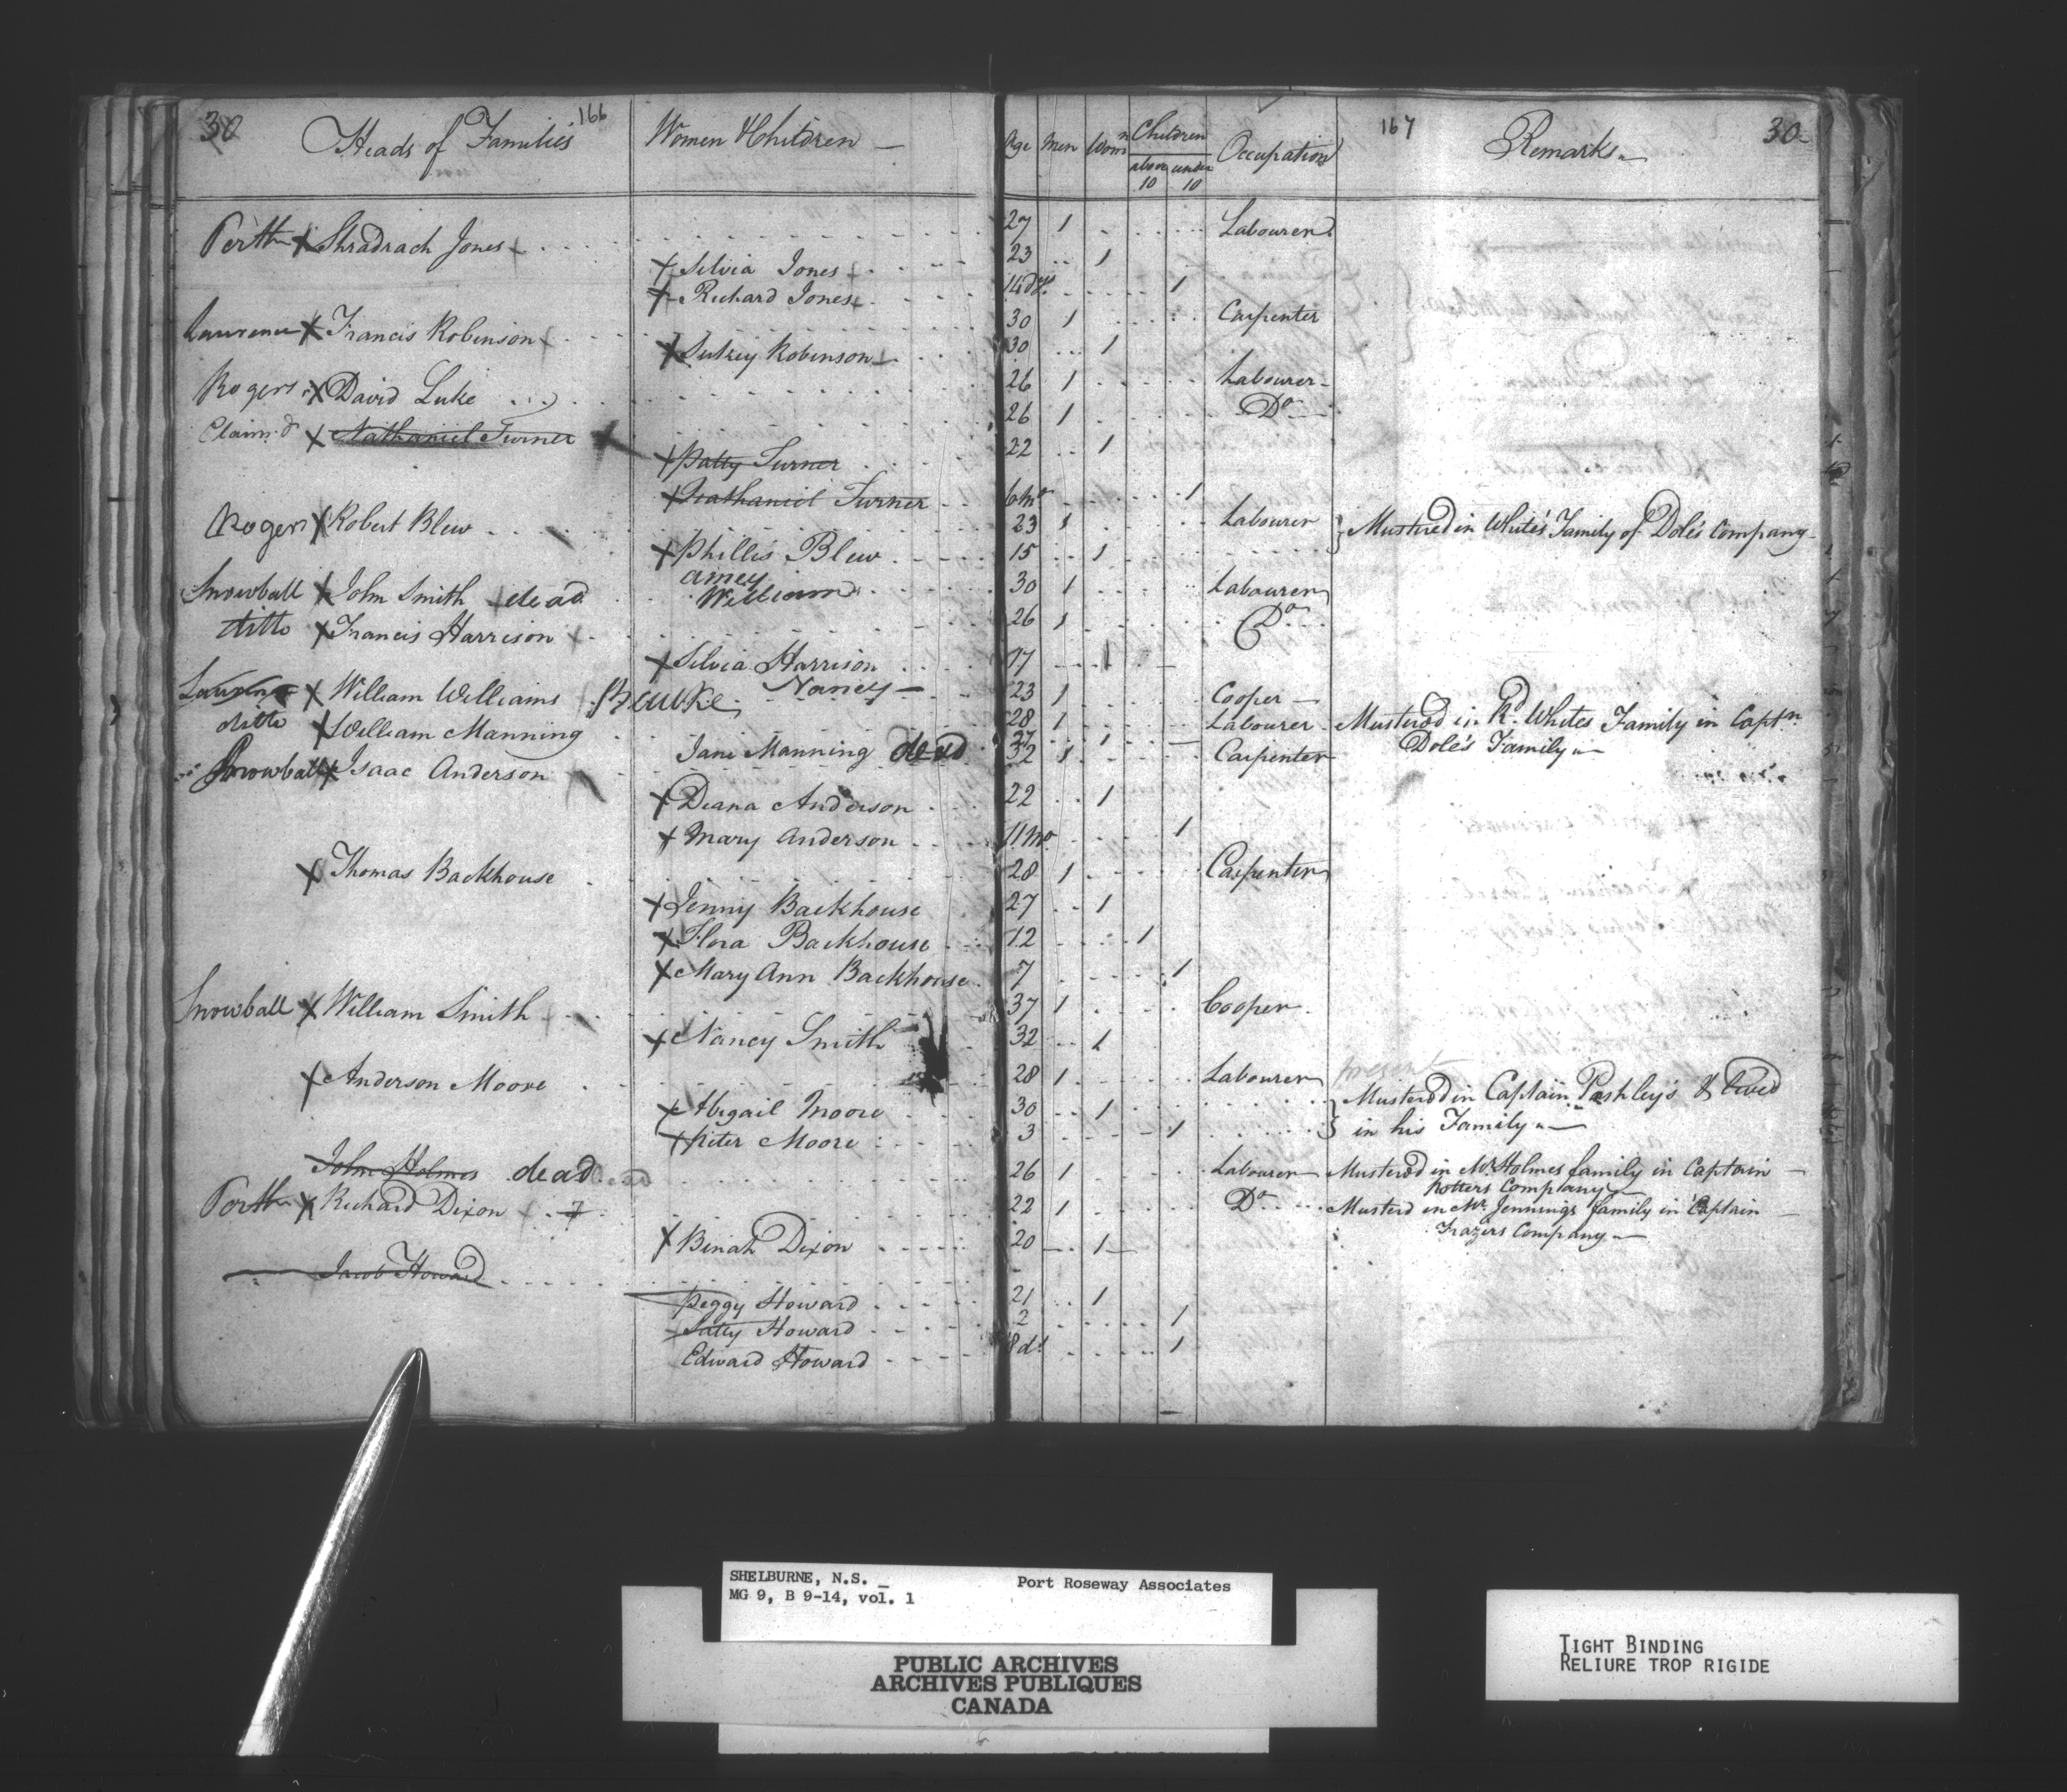 30 Heads of Families 166 Women & Children — Age Men Womn Children above 10 under 10 Occupation 167 Remarks 30
Perth X Shradrach Jones 27 1 Labourer
X Silvia Jones 23 1
X Richard Jones 14 dys 1
Lawrence X Francis Robinson 30 1 Carpenter
X Sukey Robinson 30 1
Rogers X David Luke 26 1 Labourer
Claim'd X Nathaniel Turner X 26 1 Do
X Patty Turner 22 1
X Nathaniel Turner 6 mo 1
Rogers X Robert Blew 23 1 Labourer } Mustered in White's Family of Dole's Company
X Phillis Blew 15 1
amey
Snowball X John Smith dead William 30 1 Labourer
ditto X Francis Harrison 26 1 Do
X Silvia Harrison 17 1
X William Williams Nancy 23 1 Cooper
ditto X William Manning 28 1 Labourer Mustered in Rd. Whites Family in Captn
Jane Manning dead 27 1 Dole's Family
Snowball X Isaac Anderson 32 1 Carpenter
X Diana Anderson 22 1
X Mary Anderson 11 mo 1
X Thomas Backhouse 28 1 Carpenter
X Jenny Backhouse 27 1
X Flora Backhouse 12 1
X Mary Ann Backhouse 7 1
Snowball X William Smith 37 1 Cooper
X Nancy Smith 32 1
X Anderson Moore 28 1 Labourer present
X Abigail Moore 30 1 } Mustered in Captain Pashley's & lived
X Peter Moore 3 1 in his Family
John Holmes dead dead 26 1 Labourer Mustered in Mr. Holmes family in Captain
Potters Company
Perth X Richard Dixon 22 1 Do Musterd in Mr. Jennings family in Captain
X Binah Dixon 20 1 Frazers Company
Jacob Howard
Peggy Howard 21 1
Satty Howard 2 1
Edward Howard 8 ds 1
SHELBURNE, N.S. Port Roseway Associates
MG 9, B 9-14, vol. 1
PUBLIC ARCHIVES
ARCHIVES PUBLIQUES
CANADA
TIGHT BINDING
RELIURE TROP RIGIDE